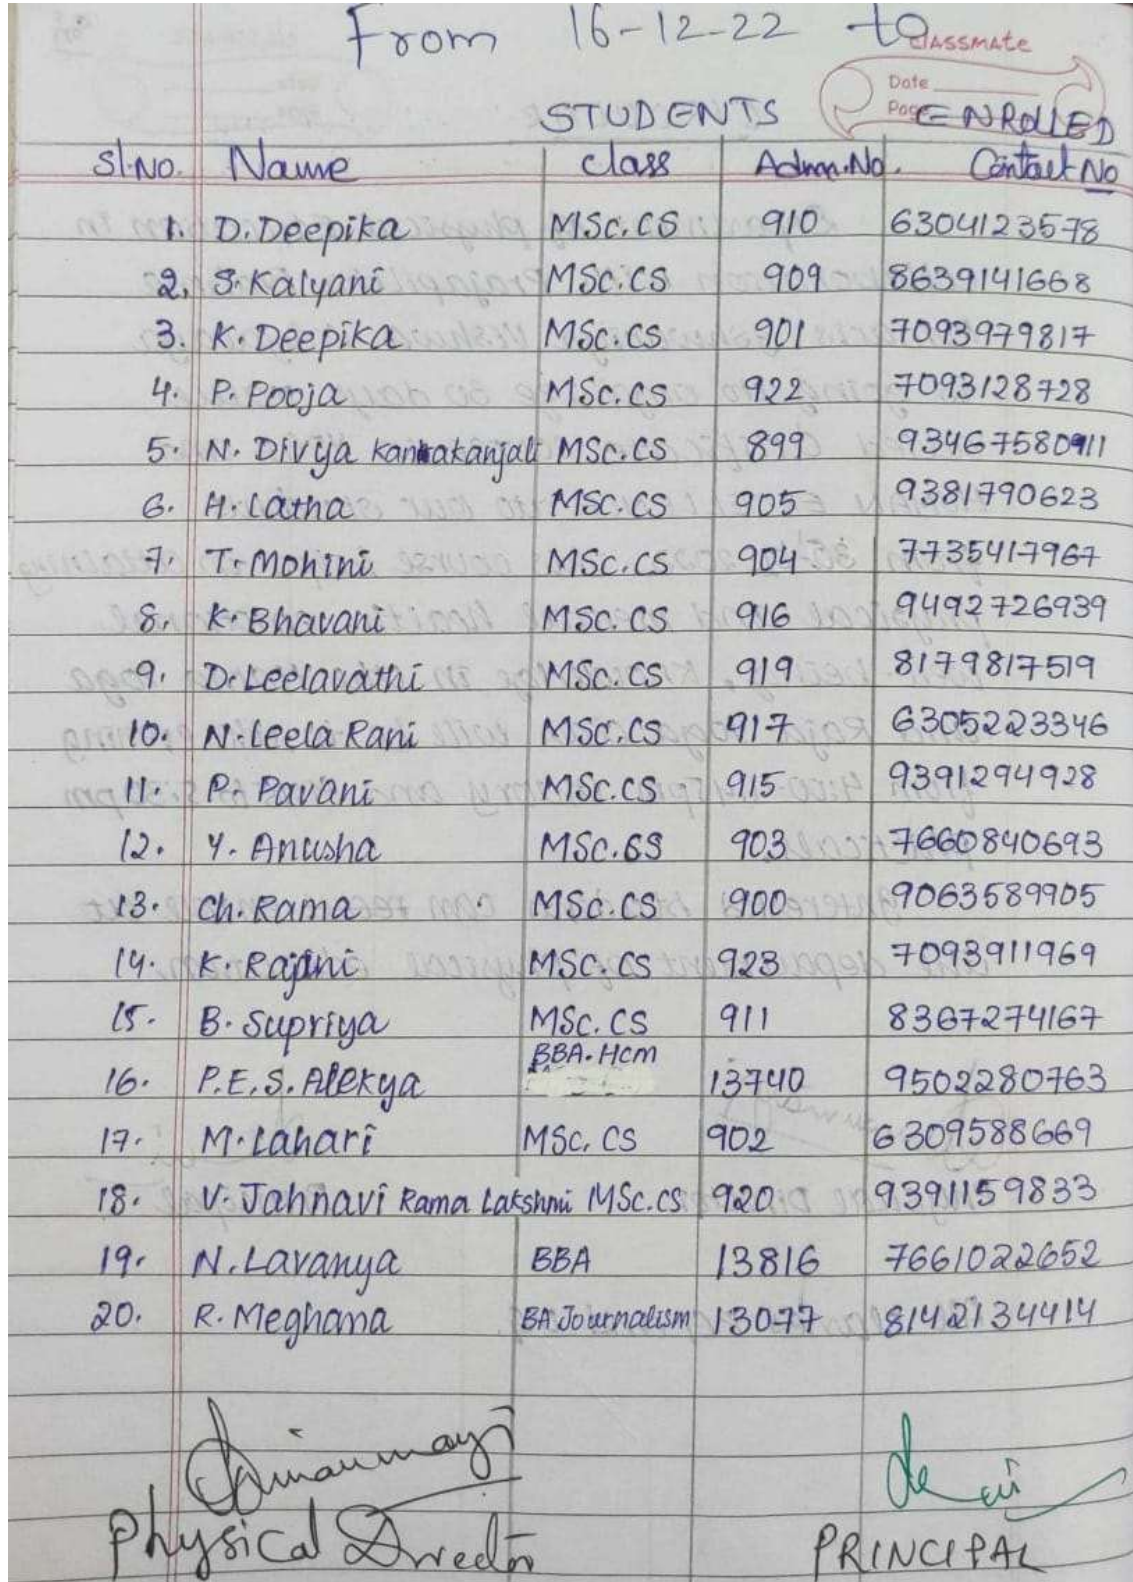 From 16-12-22 to
classmate
Date
Page
STUDENTS ENROLLED
Sl.No. Name class Admn.No. Contact No
1. D. Deepika MSc.CS 910 6304123578
2. S. Kalyani MSc.CS 909 8639141668
3. K. Deepika MSc.CS 901 7093979817
4. P. Pooja MSc.CS 922 7093128728
5. N. Divya Kanakanjali MSc.CS 899 9346758091
6. H. Latha MSc.CS 905 9381790623
7. T. Mohini MSc.CS 904 7735417967
8. K. Bhavani MSc.CS 916 9492726939
9. D. Leelavathi MSc.CS 919 8179817519
10. N. Leela Rani MSc.CS 917 6305223346
11. P. Pavani MSc.CS 915 9391294928
12. Y. Anusha MSc.CS 903 7660840693
13. Ch. Rama MSc.CS 900 9063589905
14. K. Rajani MSc.CS 923 7093911969
15. B. Supriya MSc.CS 911 8367274167
16. P.E.S. Alekya BBA.Hcm 13740 9502280763
17. M. Lahari MSc.CS 902 6309588669
18. V. Jahnavi Rama Lakshmi MSc.CS 920 9391159833
19. N. Lavanya BBA 13816 7661022652
20. R. Meghana BA Journalism 13077 8142134414
Physical Director PRINCIPAL